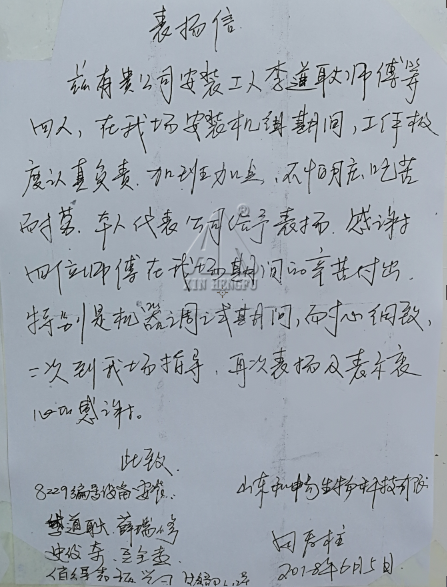 表扬信
兹有贵公司安装工人李道耿师傅等
四人，在我场安装机器期间，工作极
度认真负责，加班加点，不怕吃苦
耐劳，本人代表公司给予表扬，感谢
四位师傅在我场期间的辛苦付出
XIN HENGFU
特别是机器调试期间，耐心细致，
二次到我场指导，再次表扬及表示衷
心的感谢。
此致
8229编号设备安装
山东 生物科技
道耿 薛瑞修
2018年6月5日